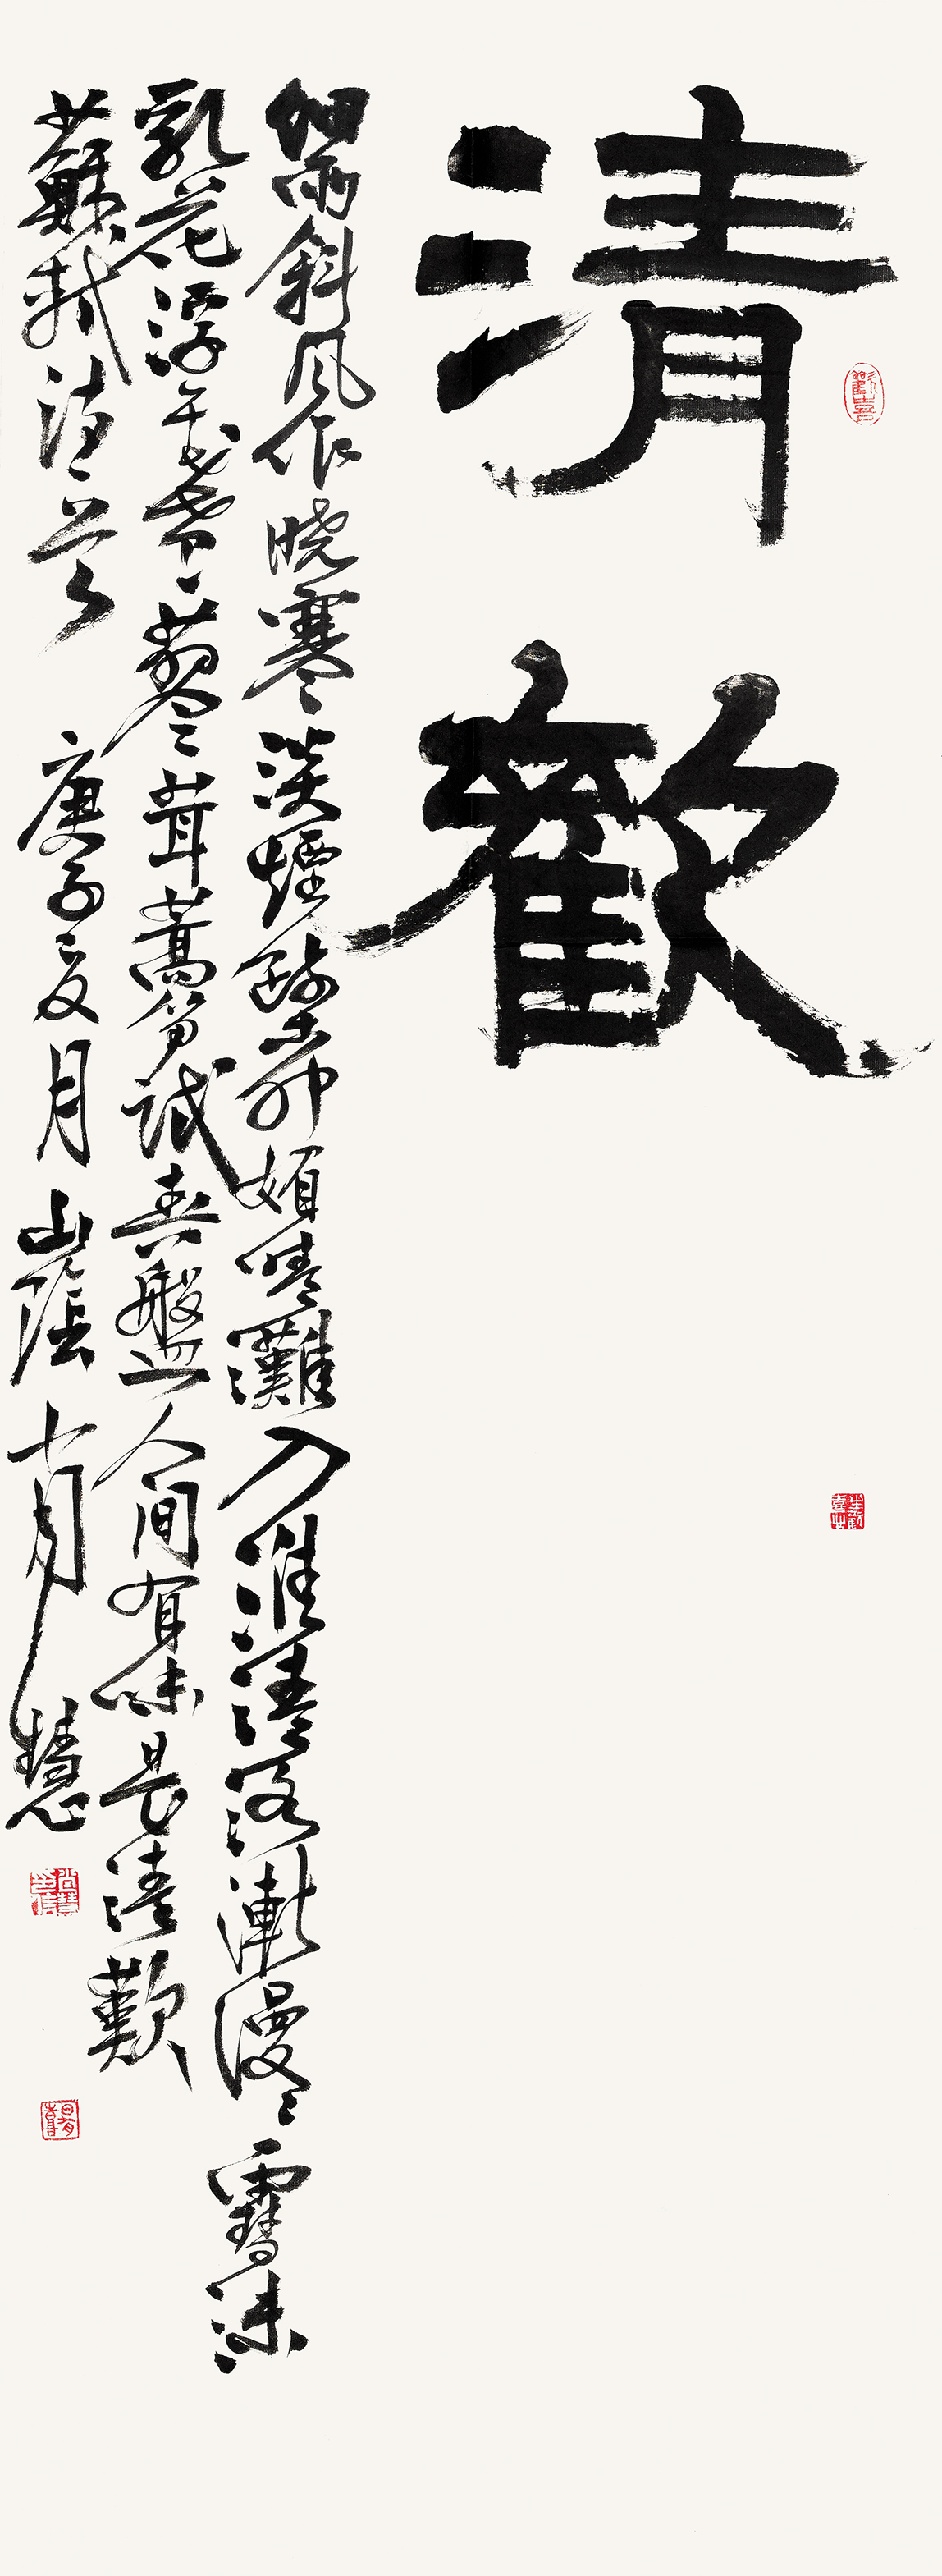 清歡
細雨斜風作曉寒淡煙疏柳媚晴灘入淮清洛漸漫漫雪沫
乳花浮午盞蓼茸蒿筍試春盤人間有味是清歡
蘇軾 庚子夏月山陰尚慧
歡喜
尚慧印信